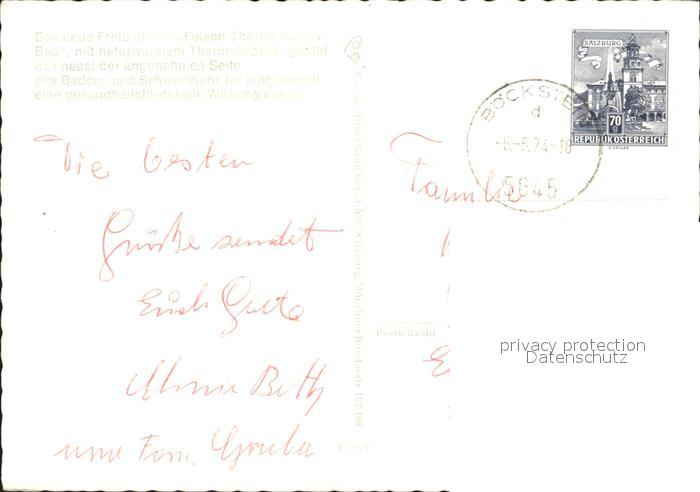 Das neue Freibad
Bad", mit naturwarmem Thermalwasser gefüllt
das nebst der angenehmen Seite
des Badens und Schwimmens für jung und alt
eine gesundheitsfördernde Wirkung ausübt
Die besten
Grüße sendet
Euch
und Fam. Gruber
Verlag
5020 Salzburg, Münchner Bundesstr. 152-156
SALZBURG
70
REPUBLIK ÖSTERREICH
BÖCKSTE
d
-5.-5.74-18
5645
Familie
Postleitzahl
privacy protection
Datenschutz